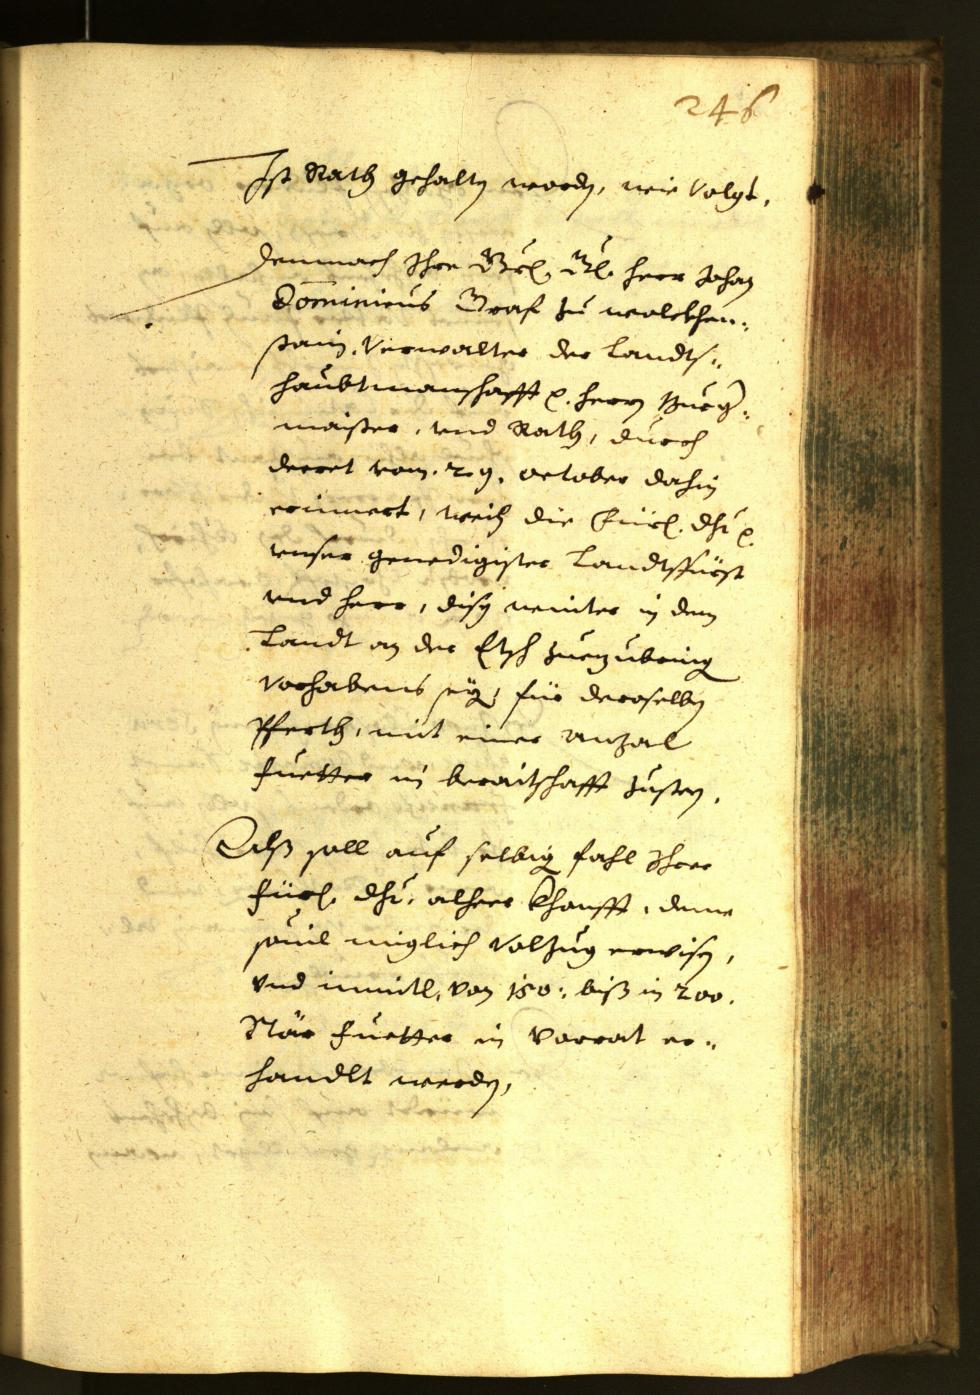 246
Ist Rath gehaltn worden, wie volgt,
Demnach Ihre Grl. Gl. herr Johan
Dominicus Graf zu wolckhen-
stain, Verwalter der Landts-
haubtmanschafft e. herrn Burg-
maister, vnd Rath, durch
decret vom. 29. october dahin
erinnert, weil die Fürl. dht e.
vnser genedigister Landtsfürst
vnd herr, disen winter in dem
Landt an der Etsch zuezubringen
Vorhabens seye, für deroselben
Pferth, mit einer anzal
fuetter in beraitschafft zusten,
Alß soll auf selbigen fahl Ihrer
fürl. dht. alherkhonfft, deme
souil miglich Volzug erwisen,
vnd inmitl, von 150: biß in 200.
Stär fuetter in Vorrat er-
handlt werden,